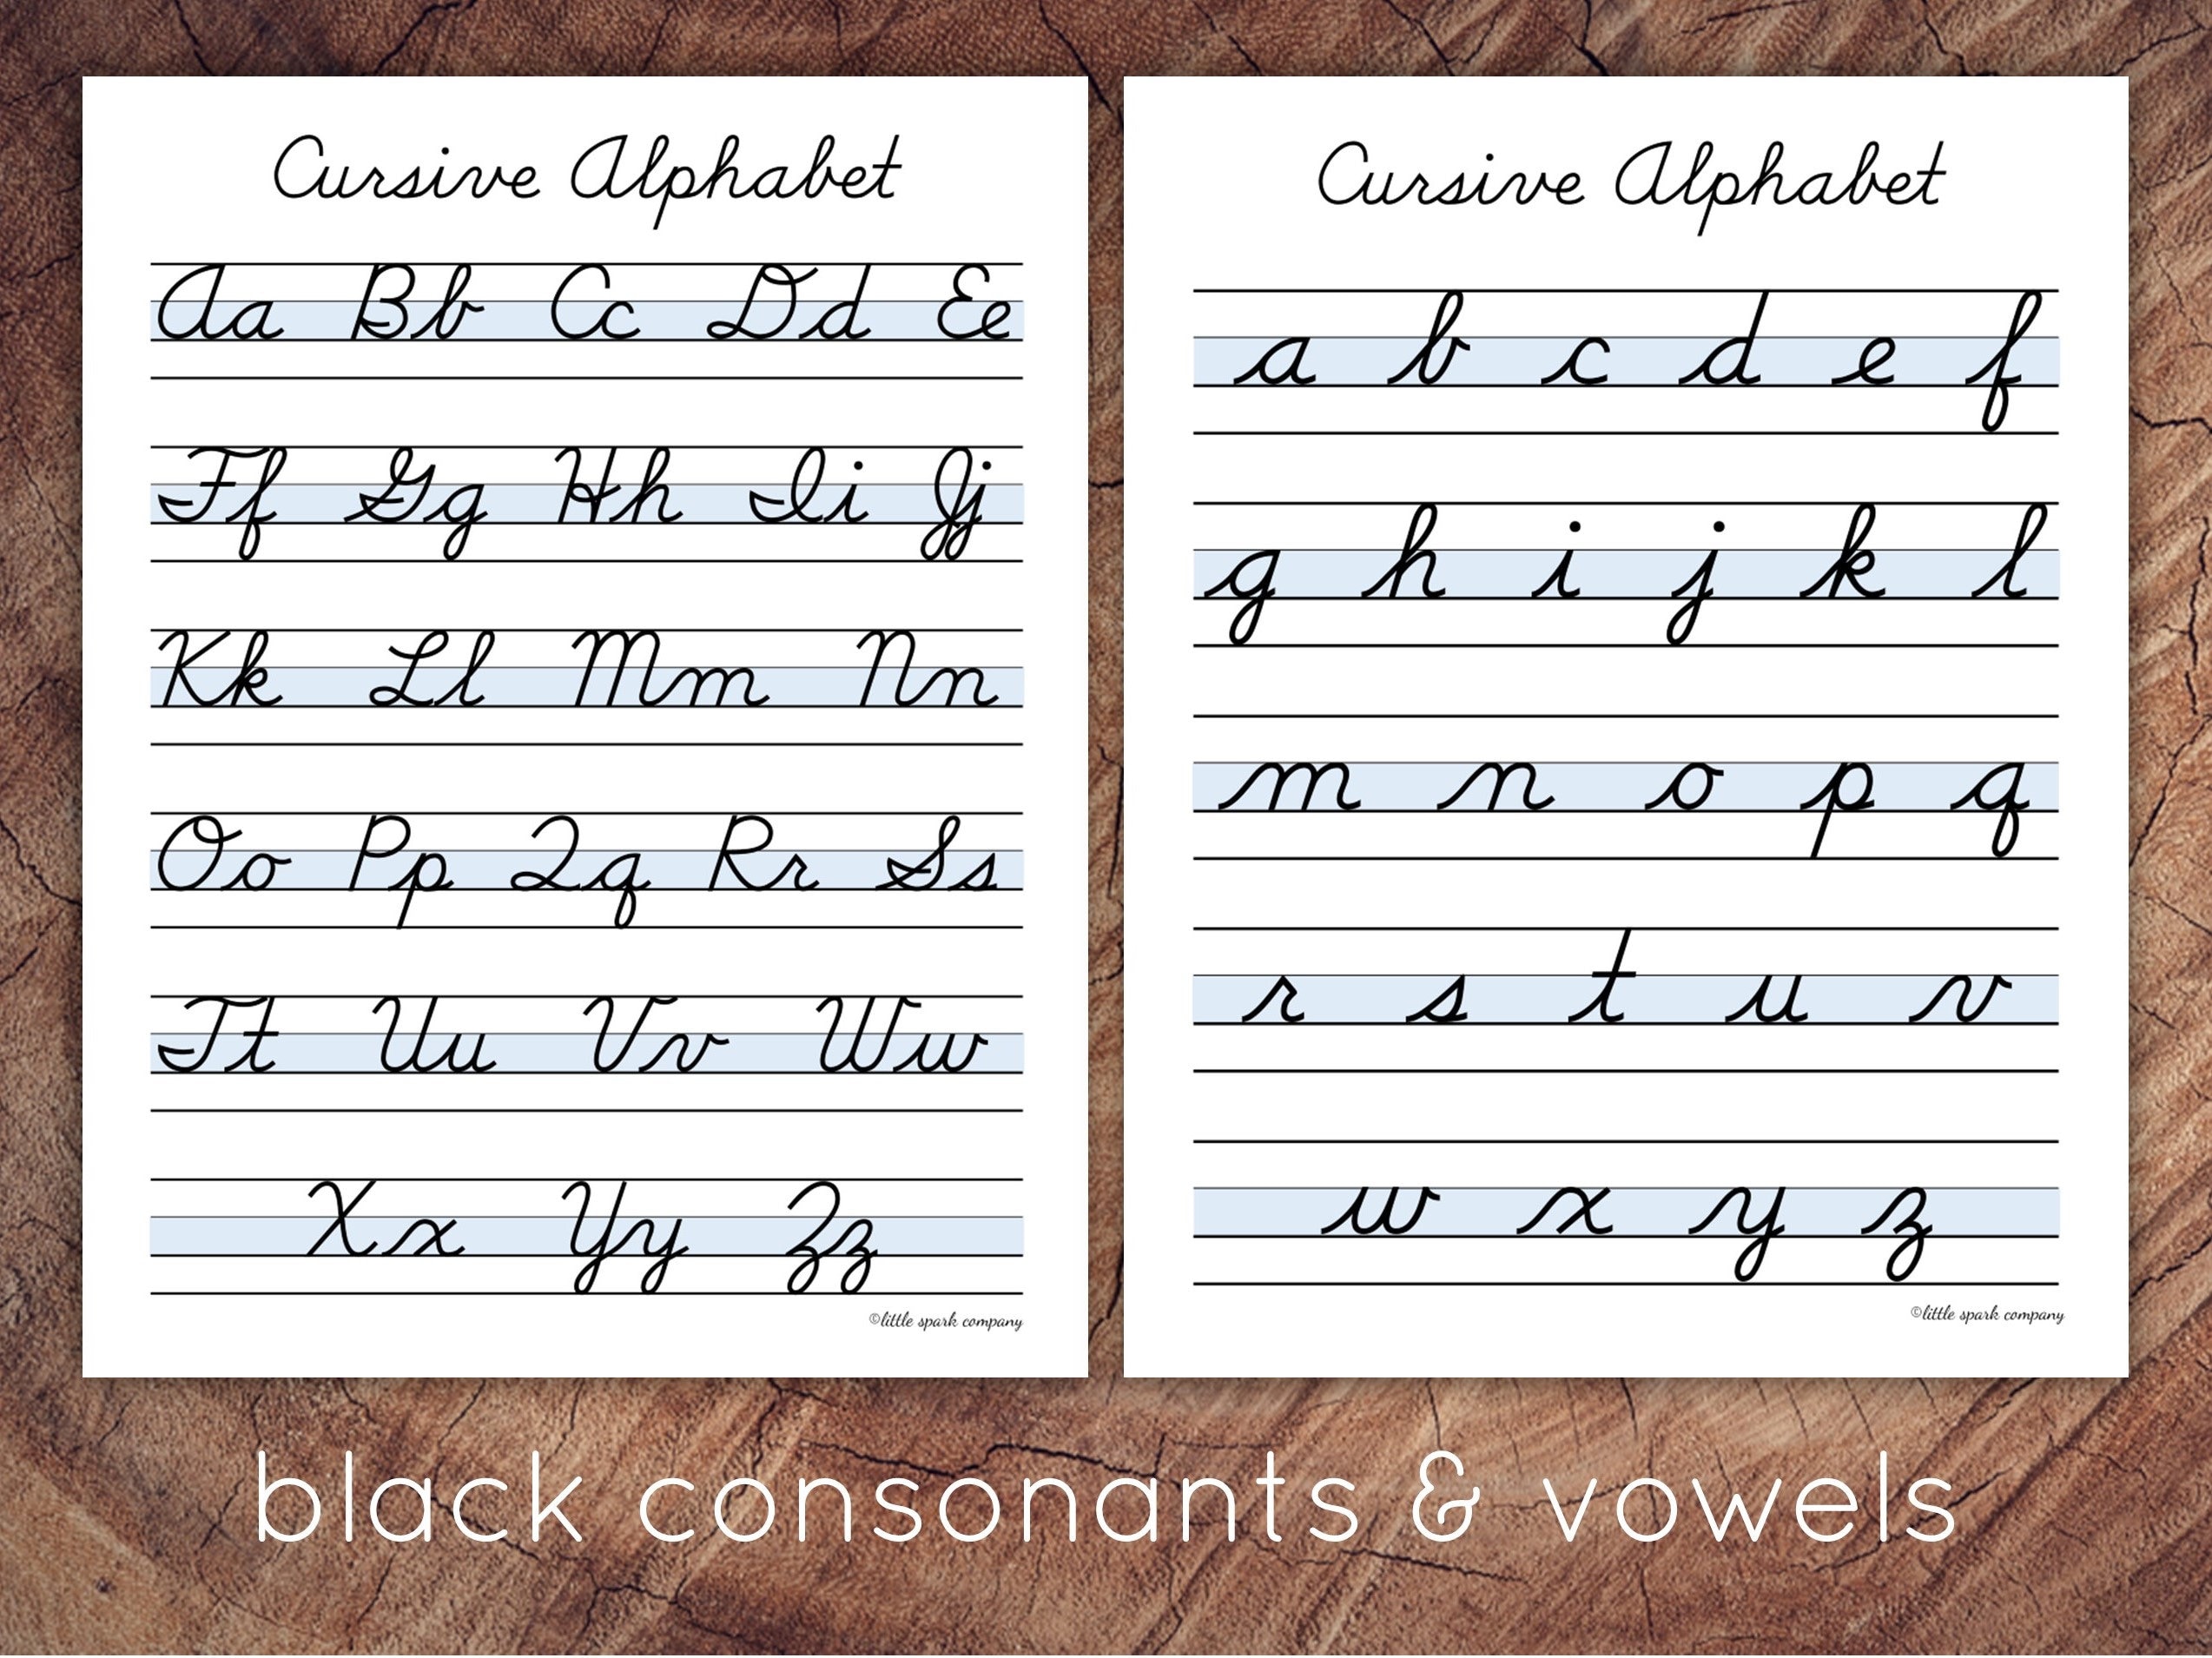 Cursive Alphabet
Aa Bb Cc Dd Ee
Ff Gg Hh Ii Jj
Kk Ll Mm Nn
Oo Pp Qq Rr Ss
Tt Uu Vv Ww
Xx Yy Zz
©little spark company
Cursive Alphabet
a b c d e f
g h i j k l
m n o p q
r s t u v
w x y z
©little spark company
black consonants & vowels